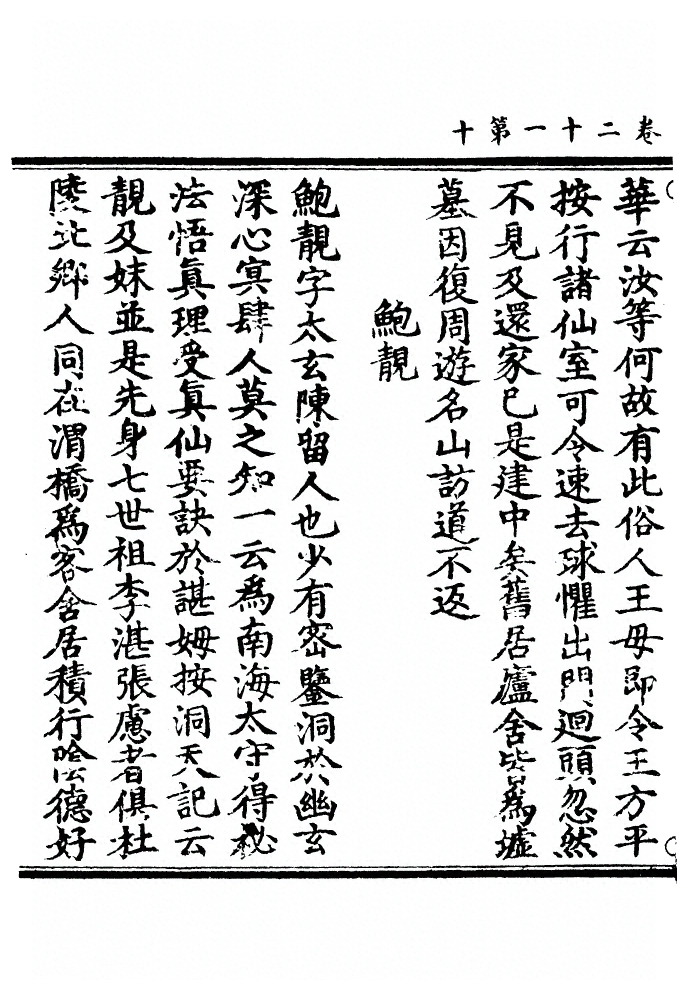 卷二十一第十
華云汝等何故有此俗人王母即令王方平
按行諸仙室可令速去球懼出門迴頭忽然
不見及還家已是建中矣舊居廬舍皆爲墟
墓因復周遊名山訪道不返
鮑靚
鮑靚字太玄陳留人也少有密鑒洞於幽玄
深心冥肆人莫之知一云爲南海太守得秘
法悟眞理受眞仙要訣於諶姆按洞天記云
靚及妹並是先身七世祖李湛張慮者俱杜
陵北鄉人同在渭橋爲客舍居積行陰德好